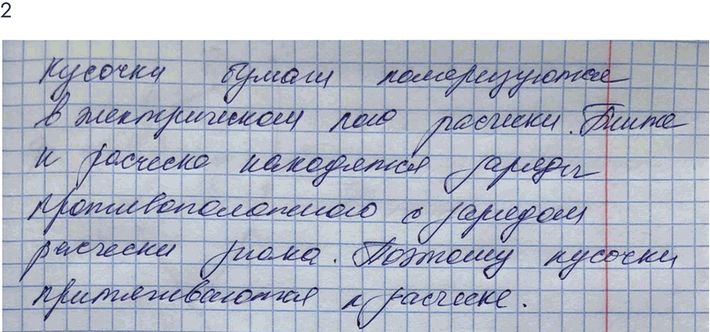 2
Кусочки бумаги поляризуются
в электрическом поле расчески. Ближе
к расческе находятся заряды
противоположного с зарядом
расчески знака. Поэтому кусочки
притягиваются к расческе.